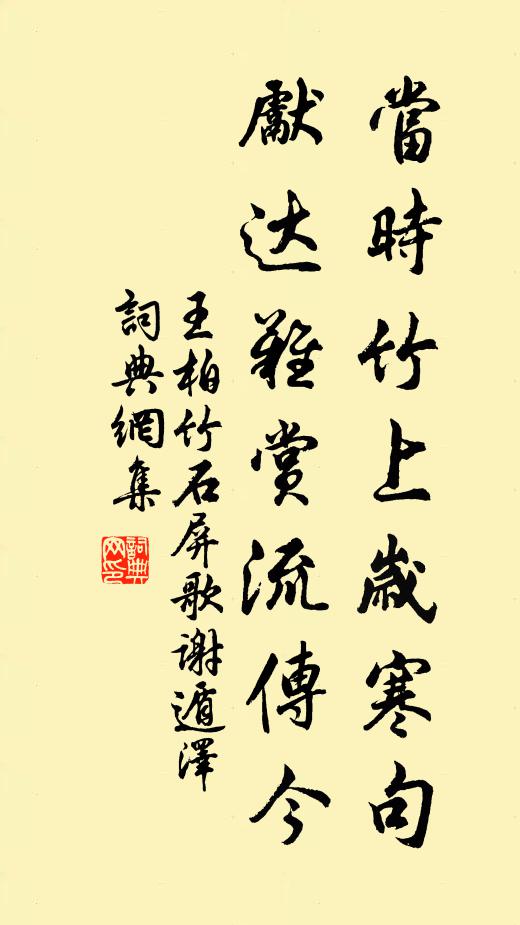 當時竹上歲寒句
獻达難賞流傳今
王柏竹石屏歌謝遁澤
詞典網集
詞典網印